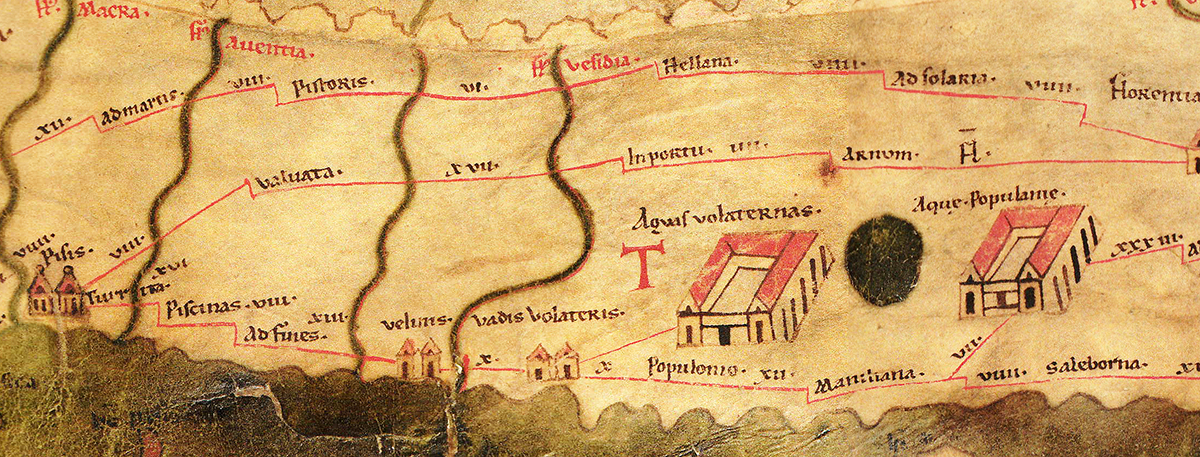 Macra.
Auentia.
fl. Vesidia.
Hellana.
VIIII.
Ad solaria.
VIIII.
Florentia
XII.
Ad martis.
VIII.
Pistoris.
VI.
Valuata.
XVII.
Inportu.
IIII.
Arnum. fl.
Aquas volaternas.
Aque. Populanie.
T
VIIII.
Pisis.
VIII.
XVI
Turrita.
Piscinas. VIII.
XIII.
Velinis.
Vadis Volateris.
XXXIII.
Ad fines.
X.
X
Populonio.
XII.
Manliana.
VII.
VIIII.
Saleborna.